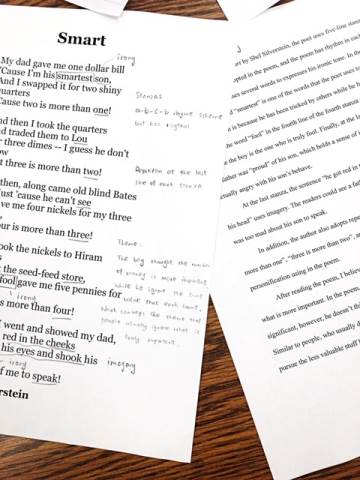 Smart
irony
My dad gave me one dollar bill
'Cause I'm his smartest son,
And I swapped it for two shiny
quarters
Cause two is more than one!
nd then I took the quarters
nd traded them to Lou
r three dimes -- I guess he don't
ow
t three is more than two!
then, along came old blind Bates
ust 'cause he can't see
ve me four nickels for my three
ur is more than three!
ook the nickels to Hiram
the seed-feed store,
fool gave me five pennies for
irony
s more than four!
I went and showed my dad,
red in the cheeks
his eyes and shook his
irony
f me to speak!
erstein
Stanzas
a-b-c-b rhyme scheme
but has rhythm
Repetition at the last
line of each stanza
Theme:
The boy thought the number
of money is more important,
while he ignore the true
value that each coins,
which conveys the theme that
people usually ignore what is
truly important.
imagery
rt by Shel Silverstein, the poet uses five-line stan
opted in the poem, and the poem has rhythm in each
uses several words to expresses his ironic tone. In the
d "smartest" is one of the words that the poet uses to
n is because he has been tricked by others while he h
the word "fool" in the fourth line of the fourth stanz
at the boy is the one who is truly fool. Finally, at the l
father was "proud" of his son, which holds a sense of
ctually angry with his son's behave.
At the last stanza, the sentence "he got red in t
his head" uses imagery. The readers could see a fath
was too mad about his son to speak.
In addition, the author also adopts repe
more than one", "three is more than two", an
personification using in the poem.
After reading the poem, I belie
what is more important. In the poem,
significant, however, he doesn't th
Similar to people, who usually
pursue the less valuable stuff